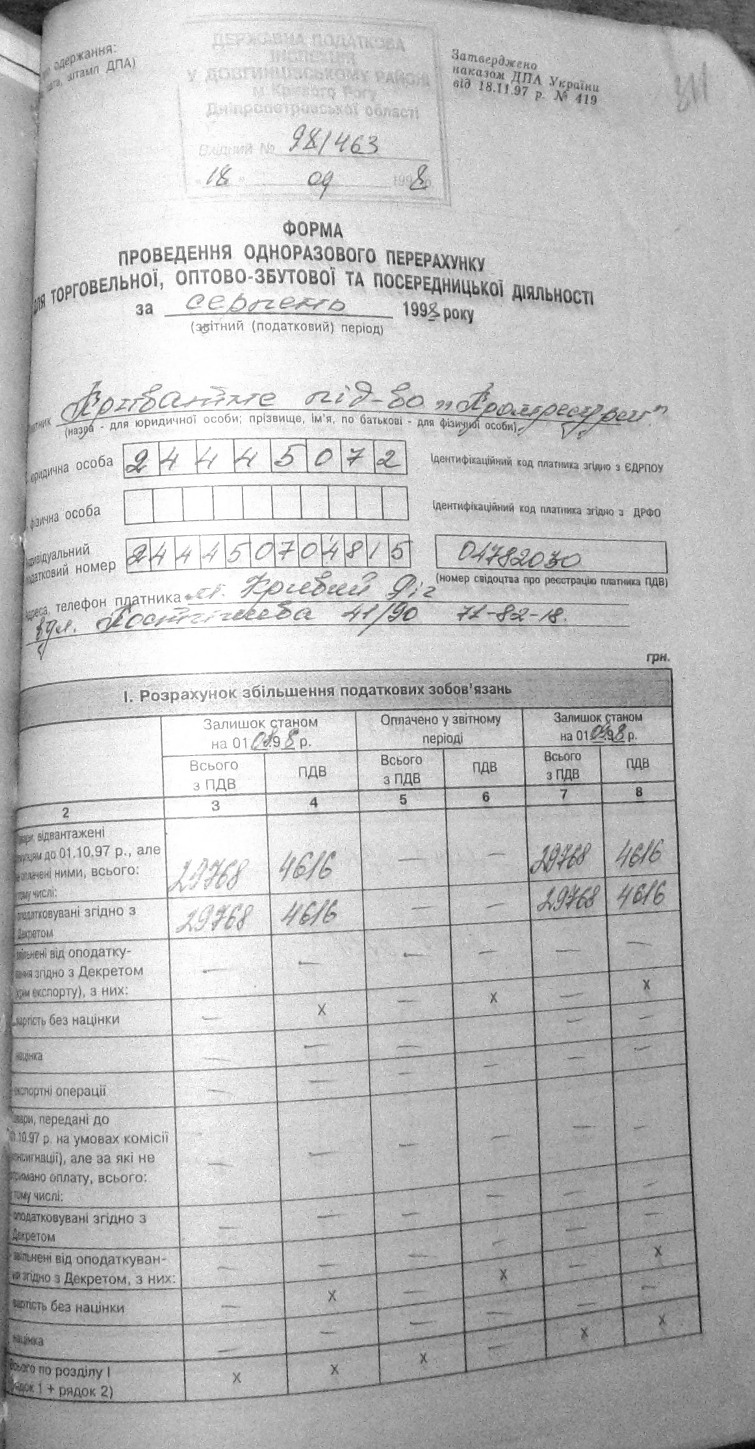 одержання:
штамп ДПА)
ДЕРЖАВНА ПОДАТКОВА
ІНСПЕКЦІЯ
У ДОВГИНЦІВСЬКОМУ РАЙОНІ
м. Кривого Рогу
Дніпропетровської області
Вхідний № 981463
"18" 09 1998
Затверджено
наказом ДПА України
від 18.11.97 р. № 419
ФОРМА
ПРОВЕДЕННЯ ОДНОРАЗОВОГО ПЕРЕРАХУНКУ
ДЛЯ ТОРГОВЕЛЬНОЇ, ОПТОВО-ЗБУТОВОЇ ТА ПОСЕРЕДНИЦЬКОЇ ДІЯЛЬНОСТІ
за серпень 1998 року
(звітний (податковий) період)
Приватне під-во
(назва - для юридичної особи; прізвище, ім'я, по батькові - для фізичної особи)
юридична особа 24445072 Ідентифікаційний код платника згідно з ЄДРПОУ
фізична особа Ідентифікаційний код платника згідно з ДРФО
індивідуальний
податковий номер 244450704815 04782030
(номер свідоцтва про реєстрацію платника ПДВ)
Адреса, телефон платника м. Кривий Ріг
вул. Постишева 41/90 71-82-18.
грн.
І. Розрахунок збільшення податкових зобов'язань
Залишок станом на 01.08.98 р. Оплачено у звітному періоді Залишок станом на 01.09.98 р.
Всього з ПДВ ПДВ Всього з ПДВ ПДВ Всього з ПДВ ПДВ
2 3 4 5 6 7 8
Товари, відвантажені
покупцям до 01.10.97 р., але
не оплачені ними, всього: 29768 4616 — — 29768 4616
у тому числі:
оподатковувані згідно з
Декретом 29768 4616 — — 29768 4616
звільнені від оподатку-
вання згідно з Декретом
(крім експорту), з них: — — — — — —
вартість без націнки — x — x — x
націнка — — — — — —
експортні операції — — — — — —
Товари, передані до
01.10.97 р. на умовах комісії
(консигнації), але за які не
отримано оплату, всього: — — — — — —
у тому числі:
оподатковувані згідно з
Декретом — — — — — —
звільнені від оподаткуван-
ня згідно з Декретом, з них: — — — — — —
вартість без націнки — x — x — x
націнка — — — — — —
Всього по розділу І
(рядок 1 + рядок 2) x x x — x x